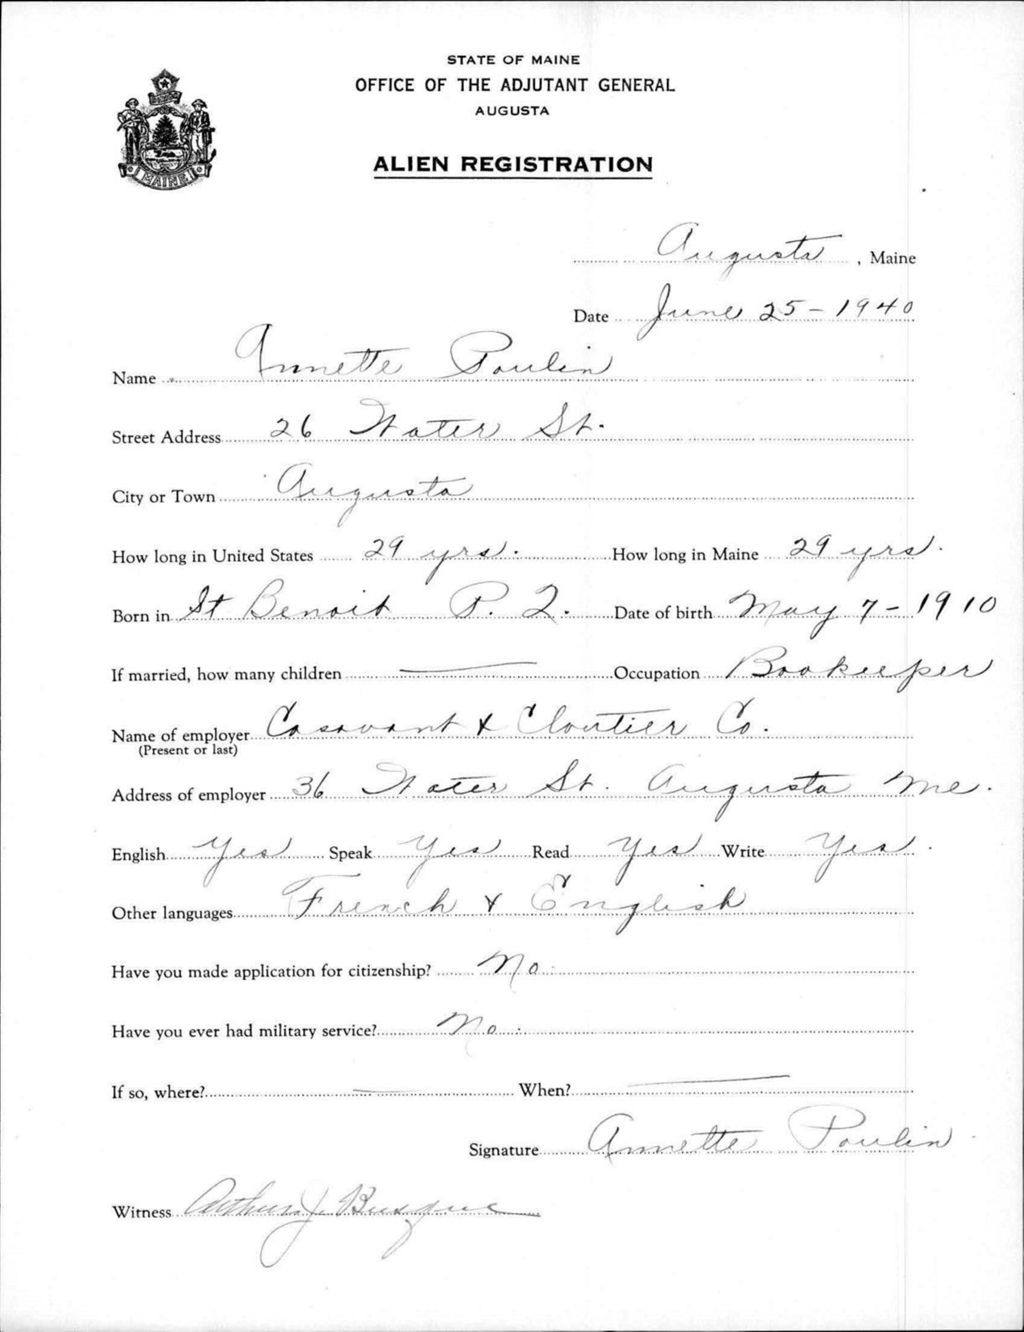 STATE OF MAINE
OFFICE OF THE ADJUTANT GENERAL
AUGUSTA
ALIEN REGISTRATION
MAINE
Augusta, Maine
Date June 25-1940
Name Annette Poulin
Street Address 26 Water St.
City or Town Augusta
How long in United States 29 yrs. How long in Maine 29 yrs.
Born in St Benoit P. Q. Date of birth May 7-1910
If married, how many children — Occupation Bookeeper
Name of employer Casavant & Cloutier Co.
(Present or last)
Address of employer 36 Water St. Augusta Me.
English Yes Speak Yes Read Yes Write Yes.
Other languages French & English
Have you made application for citizenship? No.
Have you ever had military service? No.
If so, where? — When? —
Signature Annette Poulin
Witness Arthur J. Busque